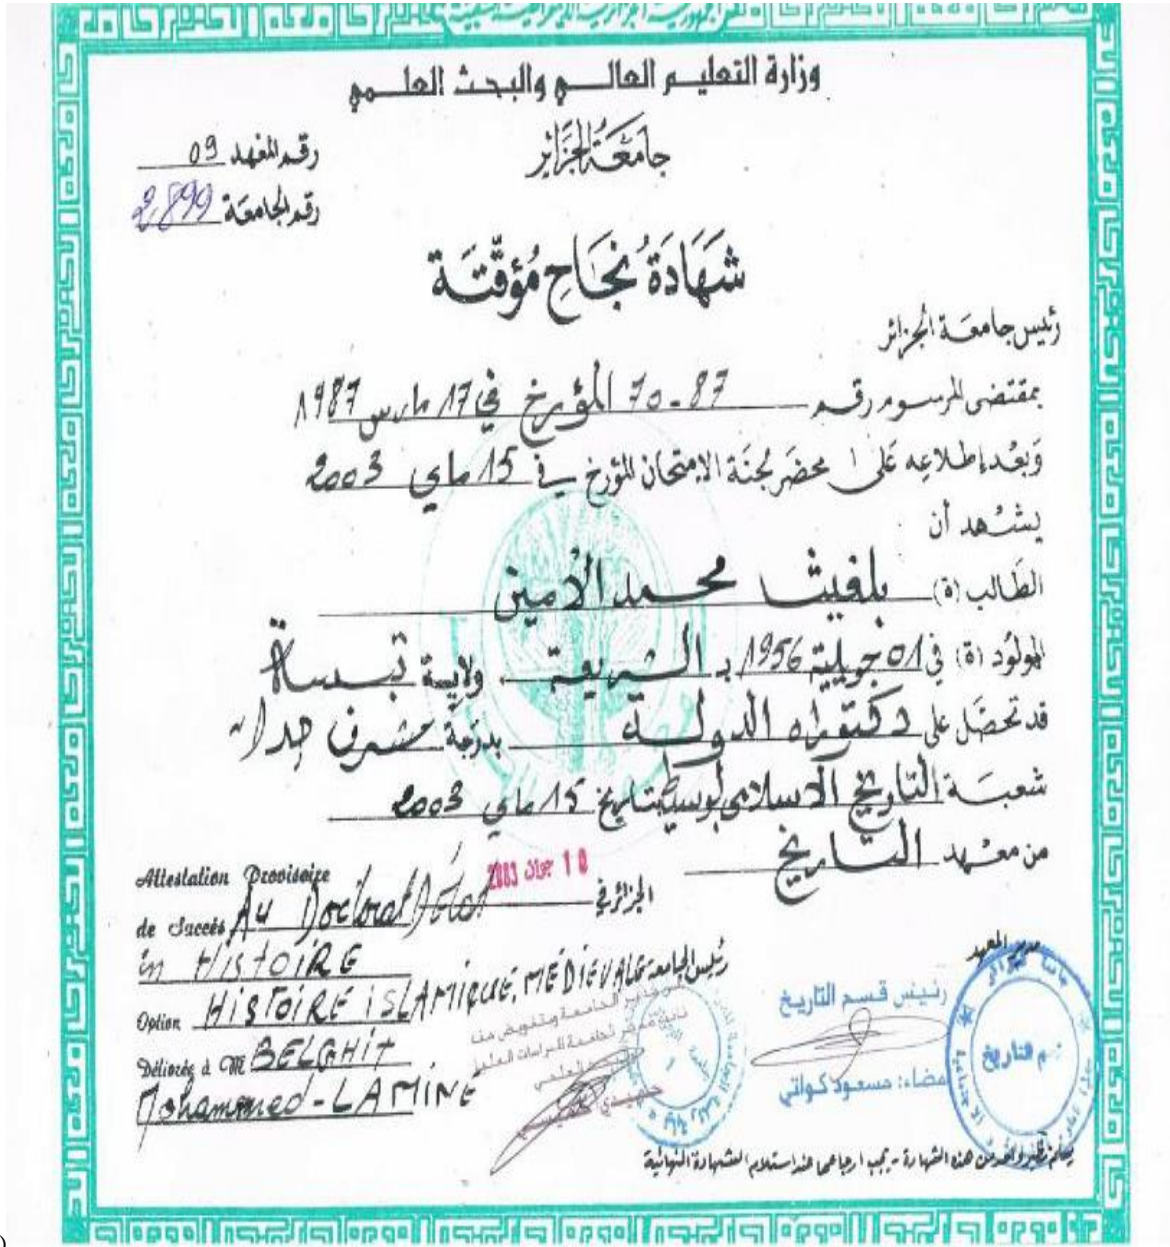 الجمهورية الجزائرية الديمقراطية الشعبية
وزارة التعليم العالي والبحث العلمي
جامعة الجزائر
رقم المعهد 09
رقم الجامعة 2899
شَهَادَةُ نجَاحِ مُؤقّتَة
رئيس جامعَة الجزائر
بمقتضى المرسوم رقم 87-70 المؤرخ في 17 مارس 1987
وَبعْد إطلاعِه عَلى محضَر لجنَة الامتحان المؤرخ في 15 ماي 2003
يشْهد أن
الطَالب (ة) بلغيث محمد الأمين
المولوُد (ة) في 01 جويلية 1956 بـ الشريعة ولاية تبسة
قد تحصَّل على دكتوراه الدولة بدرَجة مشرف جدا
شعبَة التاريخ الاسلامي الوسيط بتاريخ 15 ماي 2003
من معْهد التاريخ
الجزائر في 10 جوان 2003
Attestation Provisoire
de Succés Au Doctorat D'état
in HISTOIRE
Option HISTOIRE ISLAMIQUE, MEDIEVALE
Délivrée à M BELGHIT
Mohammed-LAMINE
رئيس الجامعة
مدير المعهد
رئيس قسم التاريخ
إمضاء: مسعود كواتي
قسم التاريخ
يسلم نظير واحد من هذه الشهادة - يجب ارجاعها عند استلام الشهادة النهائية